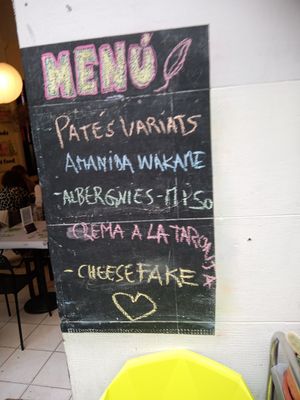 MENÚ
PATÉS VARIATS
AMANIDA WAKAME
-ALBERGNIES-MISO
CREMA A LA TARONJA
-CHEESEFAKE